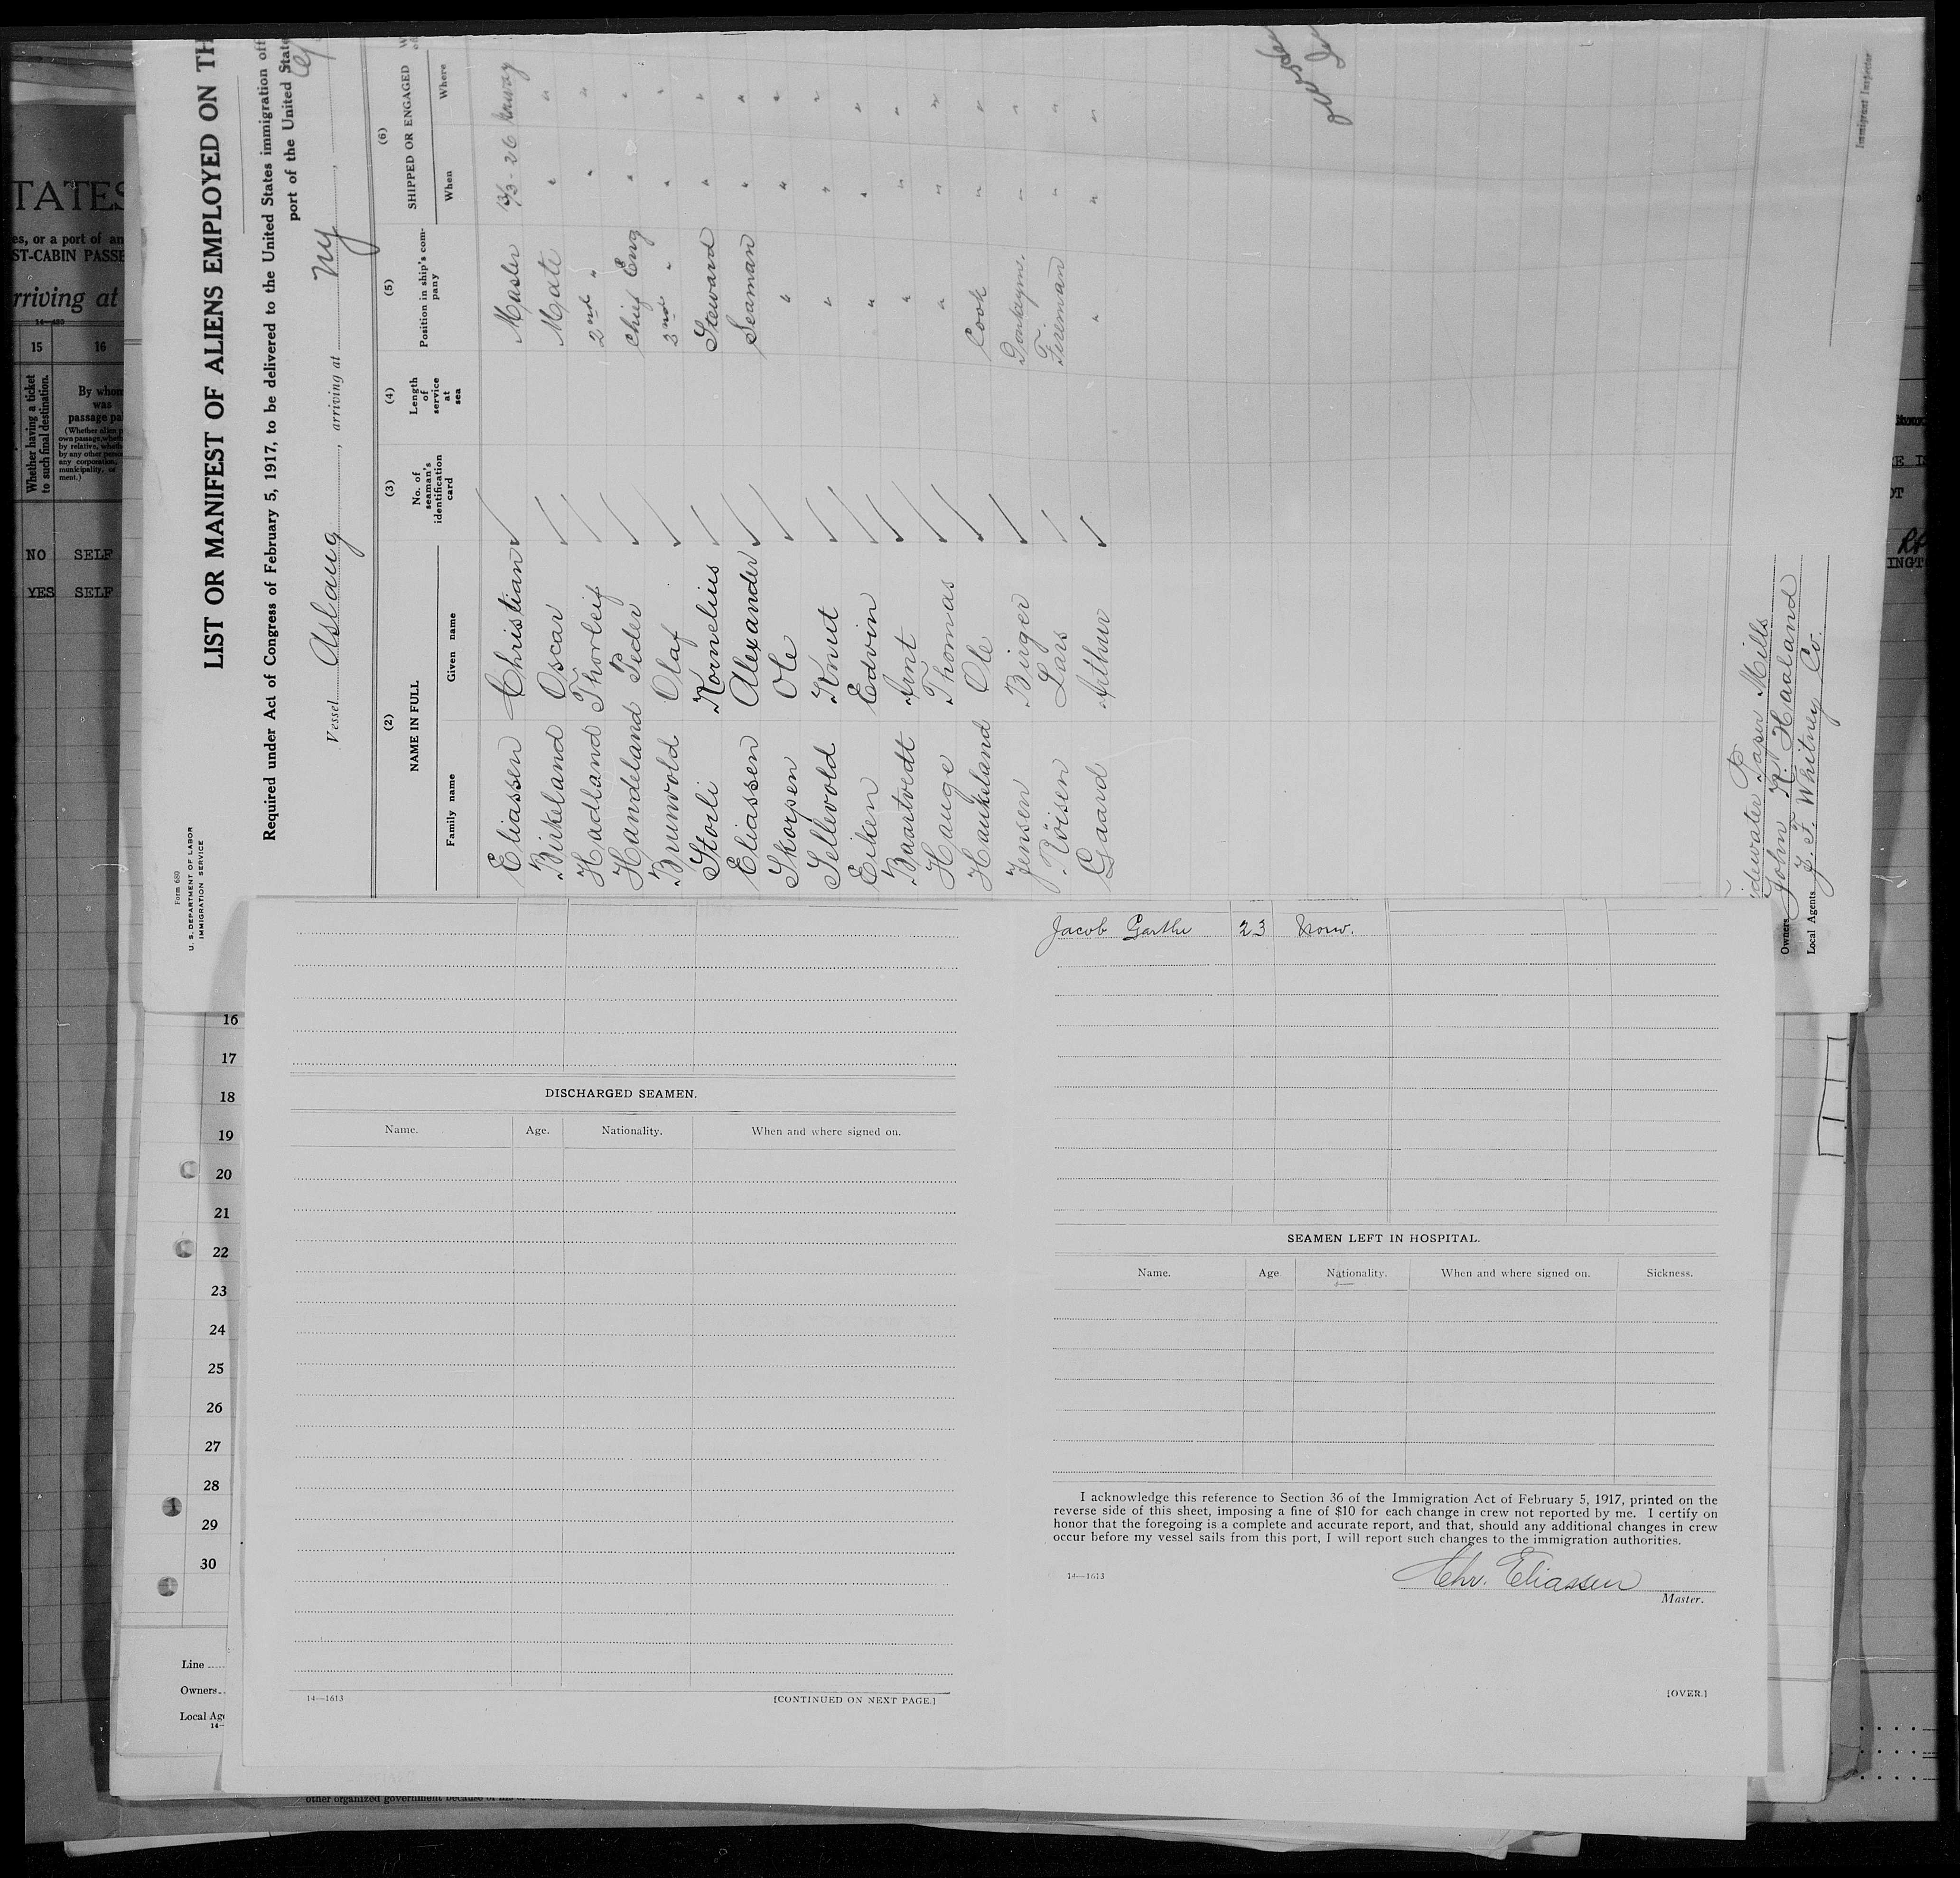 Form 680
U. S. DEPARTMENT OF LABOR
IMMIGRATION SERVICE
LIST OR MANIFEST OF ALIENS EMPLOYED ON TH
Required under Act of Congress of February 5, 1917, to be delivered to the United States immigration off
port of the United State
Vessel Aslaug, arriving at Ny,
(2) (3) (4) (5) (6)
NAME IN FULL No. of seaman's identification card Length of service at sea Position in ship's company SHIPPED OR ENGAGED
Family name Given name When Where
Eliassen Christian Master 13/3-26 Norway
Birkeland Oscar Mate " "
Hadland Thorleif 2nd " " "
Handeland Peder Chief Eng " "
Brunvold Olaf 2nd " " "
Storli Kornelius Steward " "
Eliassen Alexander Seaman " "
Skorpen Ole " " "
Sellevold Knut " " "
Eiken Edvin " " "
Baartvedt Arnt " " "
Hauge Thomas " " "
Haukeland Ole Cook " "
Jensen Birger Donkeym. " "
Röisen Lars Fireman " "
Gaard Arthur " " "
Immigrant Inspector
idewater Paper Mills
Owners John K. Haaland
Local Agents J. F. Whitney Co.
TATES
es, or a port of an
ST-CABIN PASSE
rriving at
14—455
15 16
Whether having a ticket to such final destination.
By whom
was
passage pa
NO SELF
YES SELF
INGT
16
17
18
19
20
21
22
23
24
25
26
27
28
29
30
Line
Owners
Local Ag
14—
Jacob Garthe 23 Norw.
DISCHARGED SEAMEN.
Name. Age. Nationality. When and where signed on.
14—1613 [CONTINUED ON NEXT PAGE.]
SEAMEN LEFT IN HOSPITAL.
Name. Age Nationality. When and where signed on. Sickness.
I acknowledge this reference to Section 36 of the Immigration Act of February 5, 1917, printed on the
reverse side of this sheet, imposing a fine of $10 for each change in crew not reported by me. I certify on
honor that the foregoing is a complete and accurate report, and that, should any additional changes in crew
occur before my vessel sails from this port, I will report such changes to the immigration authorities.
14—1613
Chr. Eliassen
Master.
[OVER.]
other organized government because of his or